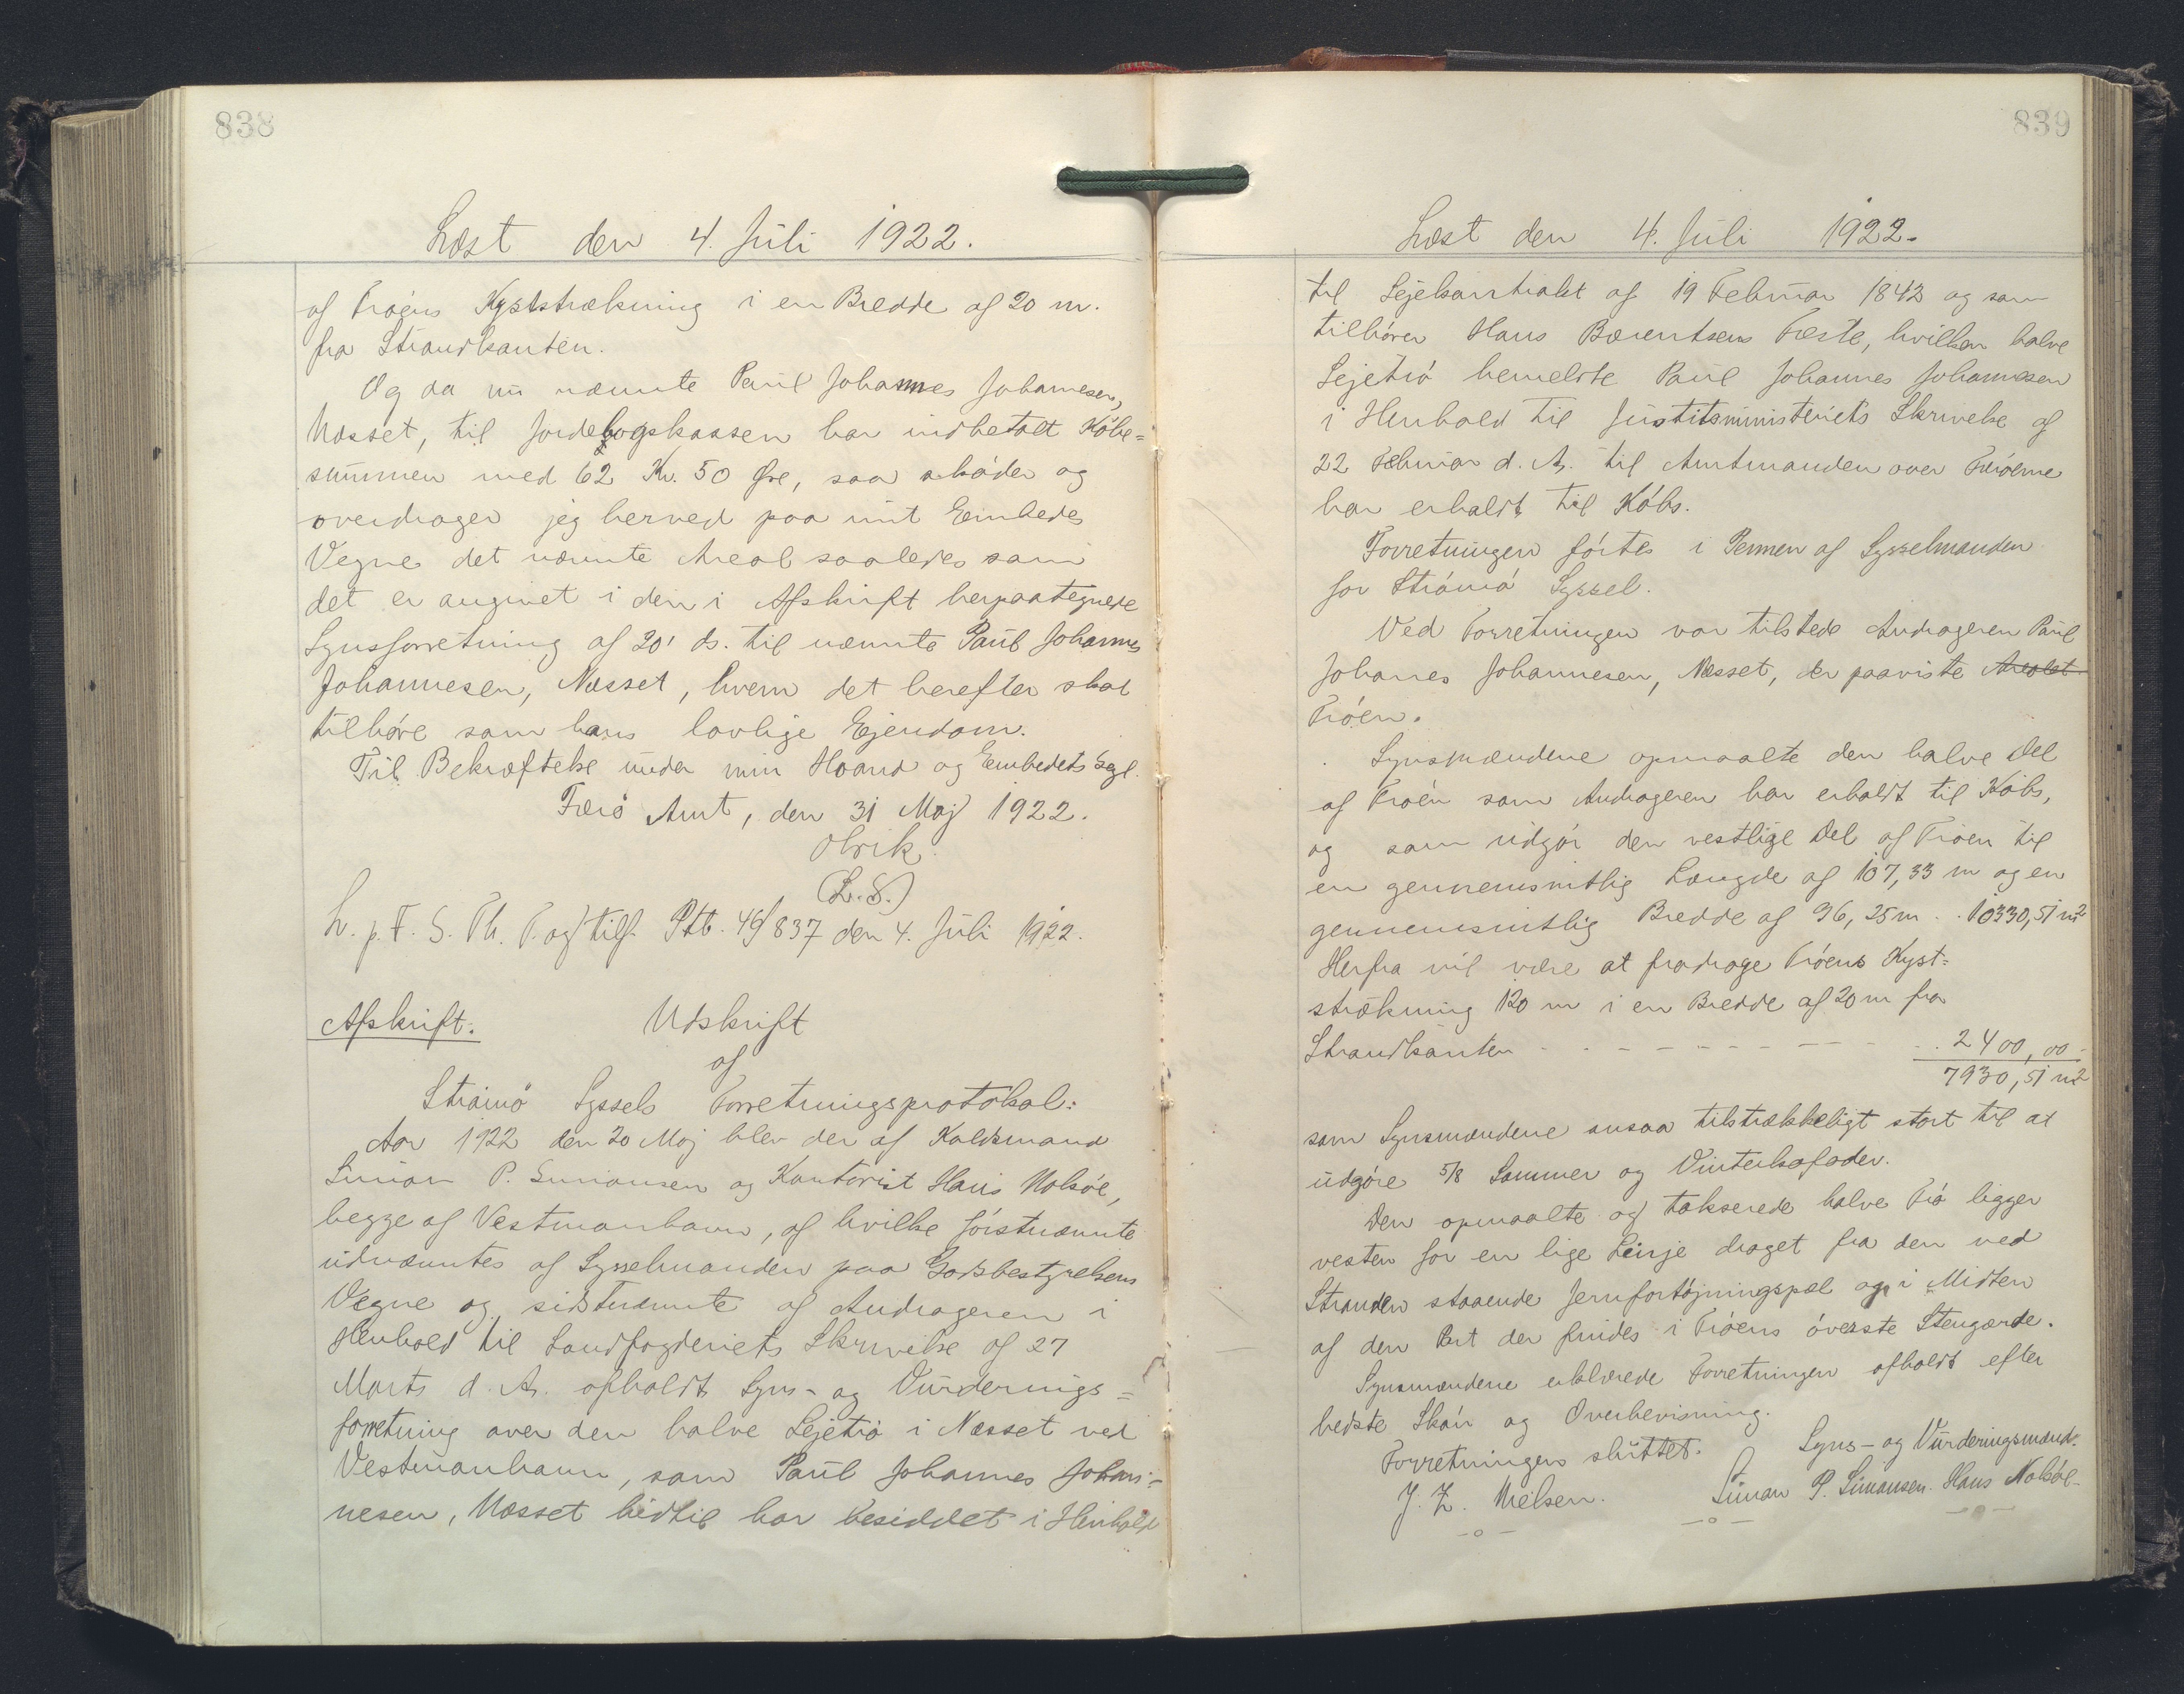 838
Læst den 4. Juli 1922.
af Trøens Kyststrækning i en Bredde af 20 m.
fra Strandkanten.
Og da nu nævnte Paul Johannes Johannesen,
Næsset, til Jordebogskassen har indbetalt Købe=
summen med 62 Kr. 50 Øre, saa skøder og
overdrager jeg herved paa mit Embedes
Vegne det nævnte Areal saaledes som
det er angivet i den i Afskrift herpaategnede
Synsforretning af 20' ds. til nævnte Paul Johannes
Johannesen, Næsset, hvem det herefter skal
tilhøre som hans lovlige Ejendom.
Til Bekræftelse under min Haand og Embedets Segl.
Færø Amt, den 31 Maj 1922.
Olrik.
(L.S.)
L. p. F. S. Th. T. og tilf. Ptb. 49/837 den 4. Juli 1922.
Afskrift. Udskrift
af
Strømø Syssels Forretningsprotokol:
Aar 1922 den 20 Maj blev der af Kaldsmand
Simon P. Simonsen og Kontorist Hans Nolsøe,
begge af Vestmanhavn, af hvilke førstnævnte
udnævntes af Sysselmanden paa Godsbestyrelsens
Vegne og sidstnævnte af Andrageren i
Henhold til Landfogderiets Skrivelse af 27
Marts d. A. afholdt Syns- og Vurderings=
forretning over den halve Lejetrø i Næsset ved
Vestmanhavn, som Paul Johannes Johan=
nesen, Næsset hidtil har besiddet i Henhold
839
Læst den 4. Juli 1922.
til Lejekontrakt af 19 Februar 1842 og som
tilhører Hans Bærentsens Fæste, hvilken halve
Lejetrø bemeldte Paul Johannes Johannesen
i Henhold til Justitsministeriets Skrivelse af
22 Februar d. A. til Amtmanden over Færøerne
har erholdt til Købs.
Forretningen førtes i Pennen af Sysselmanden
for Strømø Syssel.
Ved Forretningen var tilstede Andrageren Paul
Johanes Johannesen, Næsset, der paaviste Arealet
Trøen.
Synsmændene opmaalte den halve Del
af Trøen som Andrageren har erholdt til Købs,
og som udgør den vestlige Del af Trøen til
en gennemsnitlig Længde af 107,33 m og en
gennemsnitlig Bredde af 96,25 m . . 10330,51 m2
Herfra vil være at fradrage Trøens Kyst=
strækning 120 m i en Bredde af 20 m fra
Strandkanten - - - - - - - - - - 2400,00
7930,51 m2
som Synsmændene ansaa tilstrækkeligt stort til at
udgøre 5/8 Sommer og Vinterkofoder.
Den opmaalte og takserede halve Trø ligger
vesten for en lige Linje draget fra den ved
Stranden staaende Jernfortøjningspæl og i Midten
af den Port der findes i Trøens øverste Stengærde.
Synsmændene erklærede Forretningen afholdt efter
bedste Skøn og Overbevisning.
Forretningen sluttet. Syns- og Vurderingsmænd:
J. Z. Nielsen. Simon P. Simonsen. Hans Nolsøe.